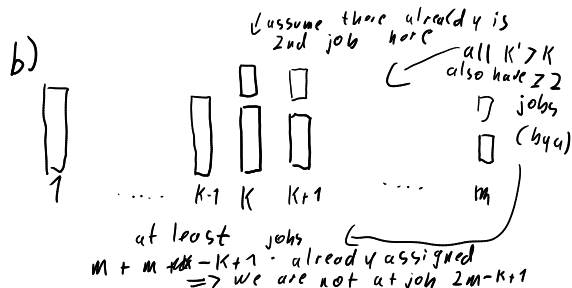 assume there already is
2nd job here
b)
all K' > K
also have ≥ 2
jobs
(by a)
1 ..... K-1 K K+1 .... m
at least jobs
m + m - K+1 already assigned
=> we are not at job 2m-K+1